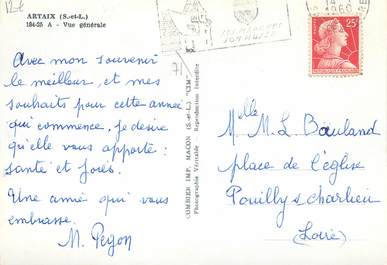 12€
ARTAIX (S.-et-L.)
184-25 A - Vue générale
Avec mon souvenir
le meilleur, et mes
souhaits pour cette année
qui commence, je désire
qu'elle vous apporte :
santé et joies.
Une amie qui vous
embrasse.
M. Pegon
71
COMBIER IMP. MACON (S.-et-L.) "CIM"
Photographie Véritable - Reproduction Interdite
SON MUSEE
14
1960
25F
Melle M.L. Bouland
place de l'église
Pouilly s charlieu
(Loire)